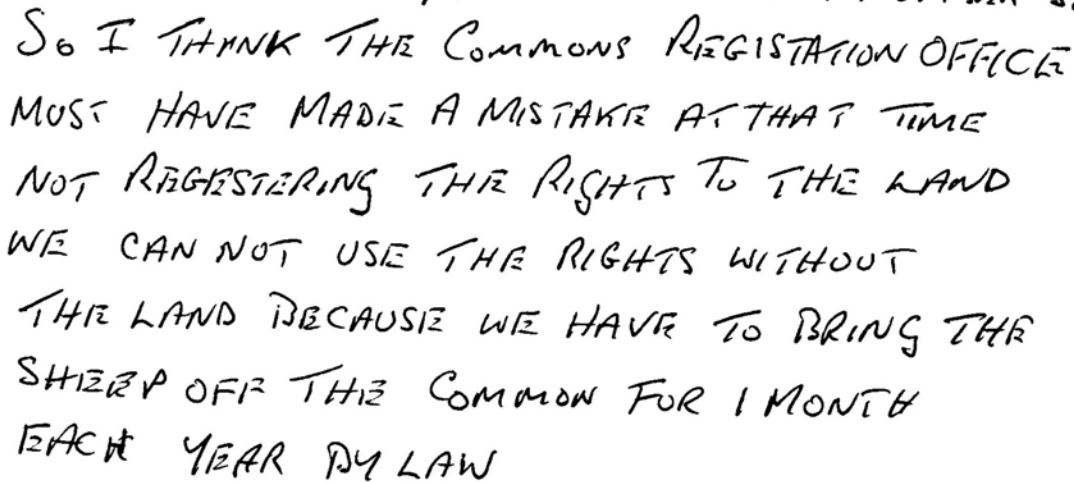 So I THINK THE COMMONS REGISTATION OFFICE
MUST HAVE MADE A MISTAKE AT THAT TIME
NOT REGESTERING THE RIGHTS TO THE LAND
WE CAN NOT USE THE RIGHTS WITHOUT
THE LAND BECAUSE WE HAVE TO BRING THE
SHEEP OFF THE COMMON FOR 1 MONTH
EACH YEAR BY LAW